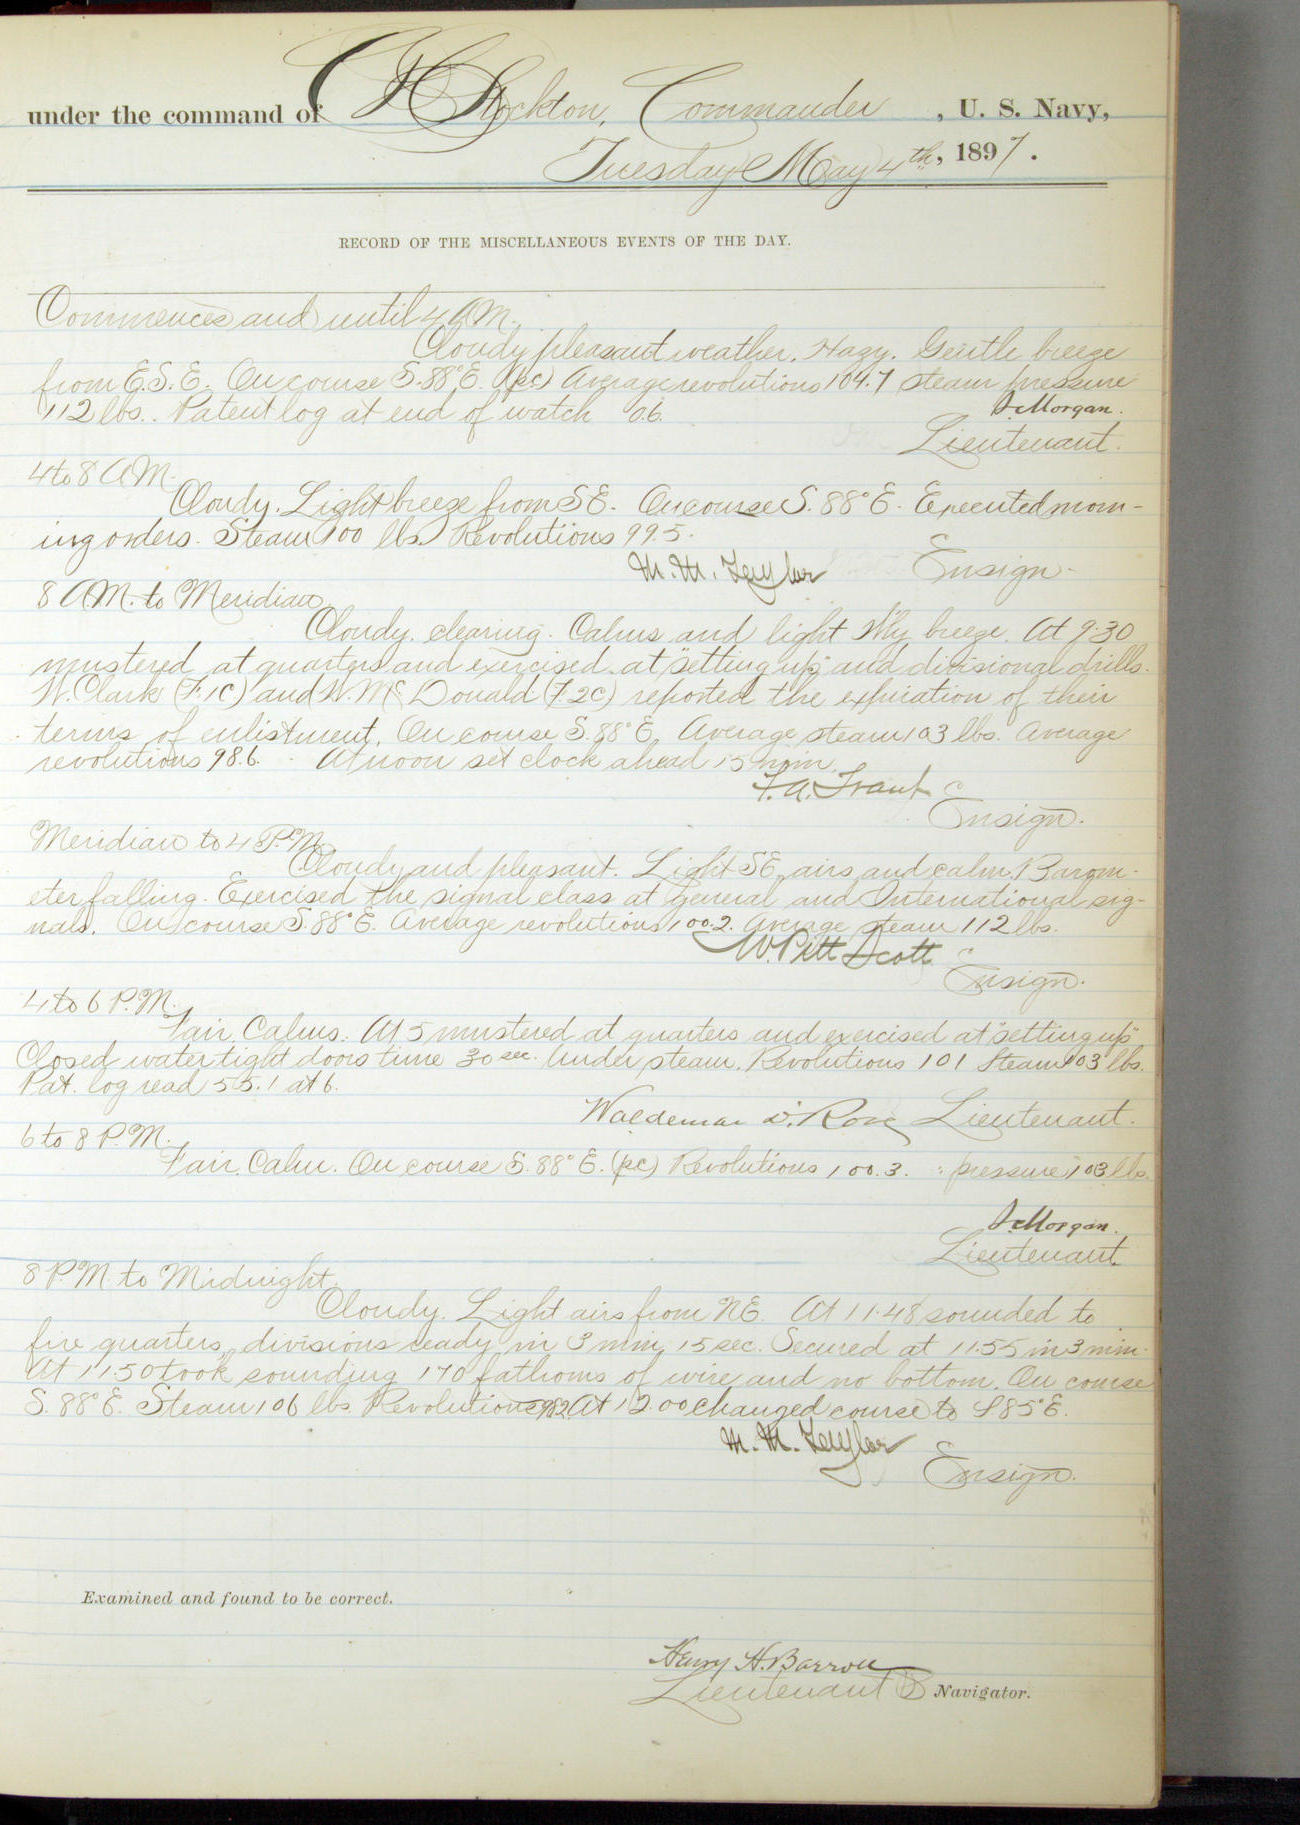 under the command of C H Stockton, Commander, U. S. Navy,
Tuesday May 4th, 1897.
RECORD OF THE MISCELLANEOUS EVENTS OF THE DAY.
Commences and until 4 A.M.
Cloudy pleasant weather. Hazy. Gentle breeze
from E.S.E. On course S. 88° E. (pc) Average revolutions 104.7 steam pressure
112 lbs. Patent log at end of watch 0.6.
J. Morgan.
Lieutenant.
4 to 8 A.M.
Cloudy. Light breeze from SE. On course S. 88° E. Executed morn-
ing orders. Steam 100 lbs. Revolutions 99.5.
M. M. Taylor Ensign.
8 A.M. to Meridian
Cloudy. clearing. Calms and light breeze. At 9.30
mustered at quarters and exercised at "setting up" and divisional drills.
W. Clark (F. 1c) and W. McDonald (F. 2c) reported the expiration of their
terms of enlistment. On course S. 88° E. Average steam 103 lbs. Average
revolutions 98.6. At noon set clock ahead 15 min.
F. A. Traut
Ensign.
Meridian to 4 P.M.
Cloudy and pleasant. Light SE. airs and calm. Barom-
eter falling. Exercised the signal class at general and International sig-
nals. On course S. 88° E. Average revolutions 100.2. Average steam 112 lbs.
W. Pitt Scott
Ensign.
4 to 6 P.M.
Fair. Calms. At 5 mustered at quarters and exercised at "setting up"
Closed water tight doors time 30 sec. Under steam. Revolutions 101 Steam 103 lbs.
Pat. log read 55.1 at 6.
Waldemar D. Rose Lieutenant.
6 to 8 P.M.
Fair. Calm. On course S. 88° E. (pc) Revolutions 100.3. : pressure 103 lbs.
J. Morgan.
Lieutenant.
8 P.M. to Midnight.
Cloudy. Light airs from NE. At 11.48 sounded to
fire quarters, divisions ready in 3 min. 15 sec. Secured at 11.55 in 3 min.
At 11.50 took sounding 170 fathoms of wire and no bottom. On course
S. 88° E. Steam 106 lbs. Revolutions 98.2. At 12.00 changed course to S 85° E.
M. M. Taylor
Ensign.
Examined and found to be correct.
Henry H. Barroll
Lieutenant & Navigator.